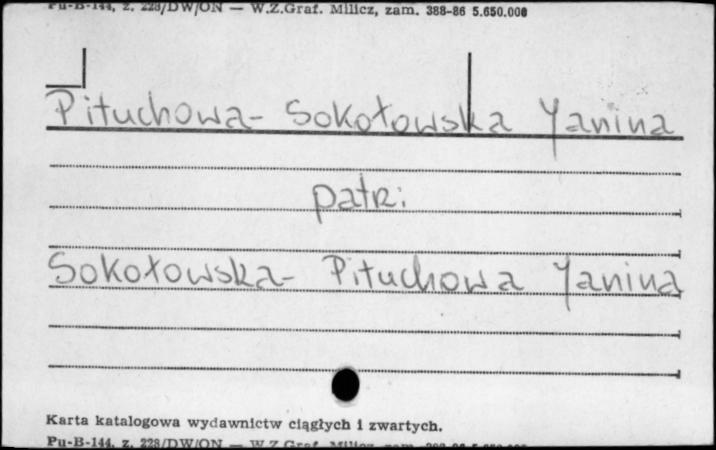 Pu-B-144, z. 228/DW/ON — W.Z.Graf. Milicz, zam. 388-86 5.650.000
Pituchowa- Sokołowska Janina
patrz:
Sokołowska- Pituchowa Janina
Karta katalogowa wydawnictw ciągłych i zwartych.
Pu-B-144, z. 228/DW/ON — W.Z.Graf. Milicz, zam. 388-86 5.650.000